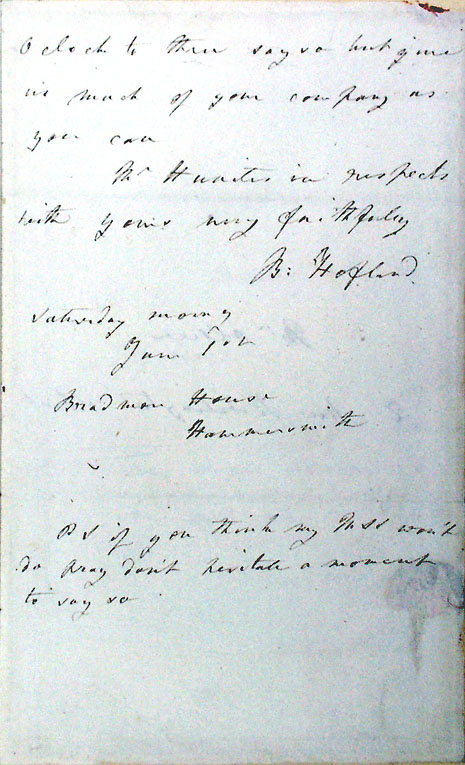 O clock to three say so but give
us much of your company as
you can
Mr H unites in respects
with yours very faithfully
B: Hofland
Saturday morng
June
House
Hammersmith
PS if you think my MSS won't
do pray don't hesitate a moment
to say so